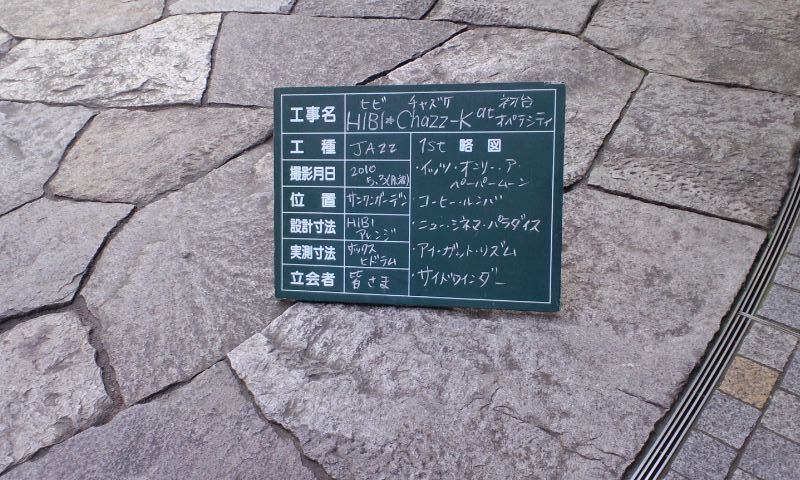 工事名 ヒビ チャズケ 初台
HIBI*Chazz-K at オペラシティ
工種 JAZZ
撮影月日 2010
5.3(月・祝)
位置 サンクンガーデン
設計寸法 HiBI
アレンジ
実測寸法 サックス
ヒドラム
立会者 皆さま
1st 略図
・イッツ・オンリー・ア・
ペーパームーン
・コーヒー・ルンバ
・ニュー・シネマ・パラダイス
・アイ・ガット・リズム
・サイドワインダー